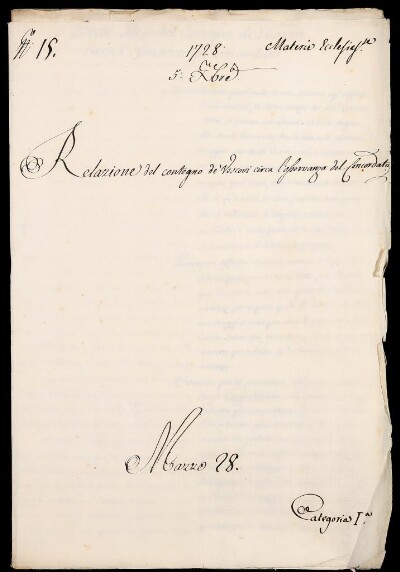 N.° 15.
1728.
Materie Ecclesiast.e
5. Xbre
Relazione del contegno de' Vescovi circa l'osservanza del Concordato
Mazzo 28.
Categoria I.a